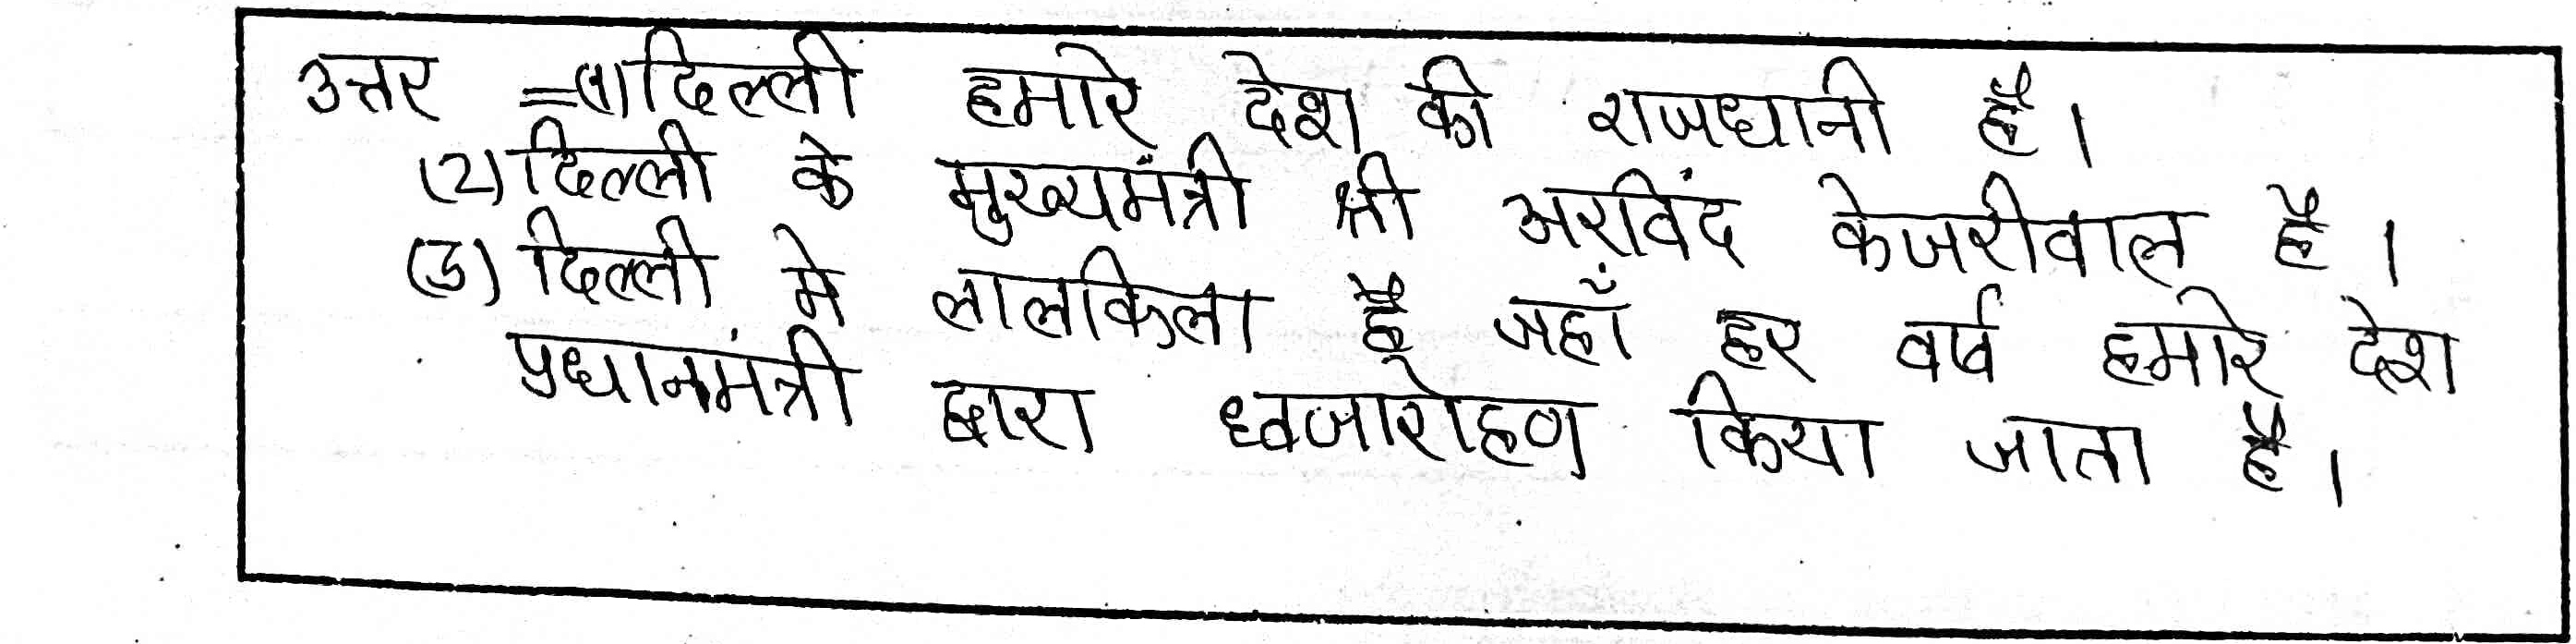 उत्तर =(1) दिल्ली हमारे देश की राजधानी है।
(2) दिल्ली के मुख्यमंत्री श्री अरविंद केजरीवाल है।
(3) दिल्ली मे लालकिला है जहाँ हर वर्ष हमारे देश
प्रधानमंत्री द्वारा ध्वजारोहण किया जाता है।